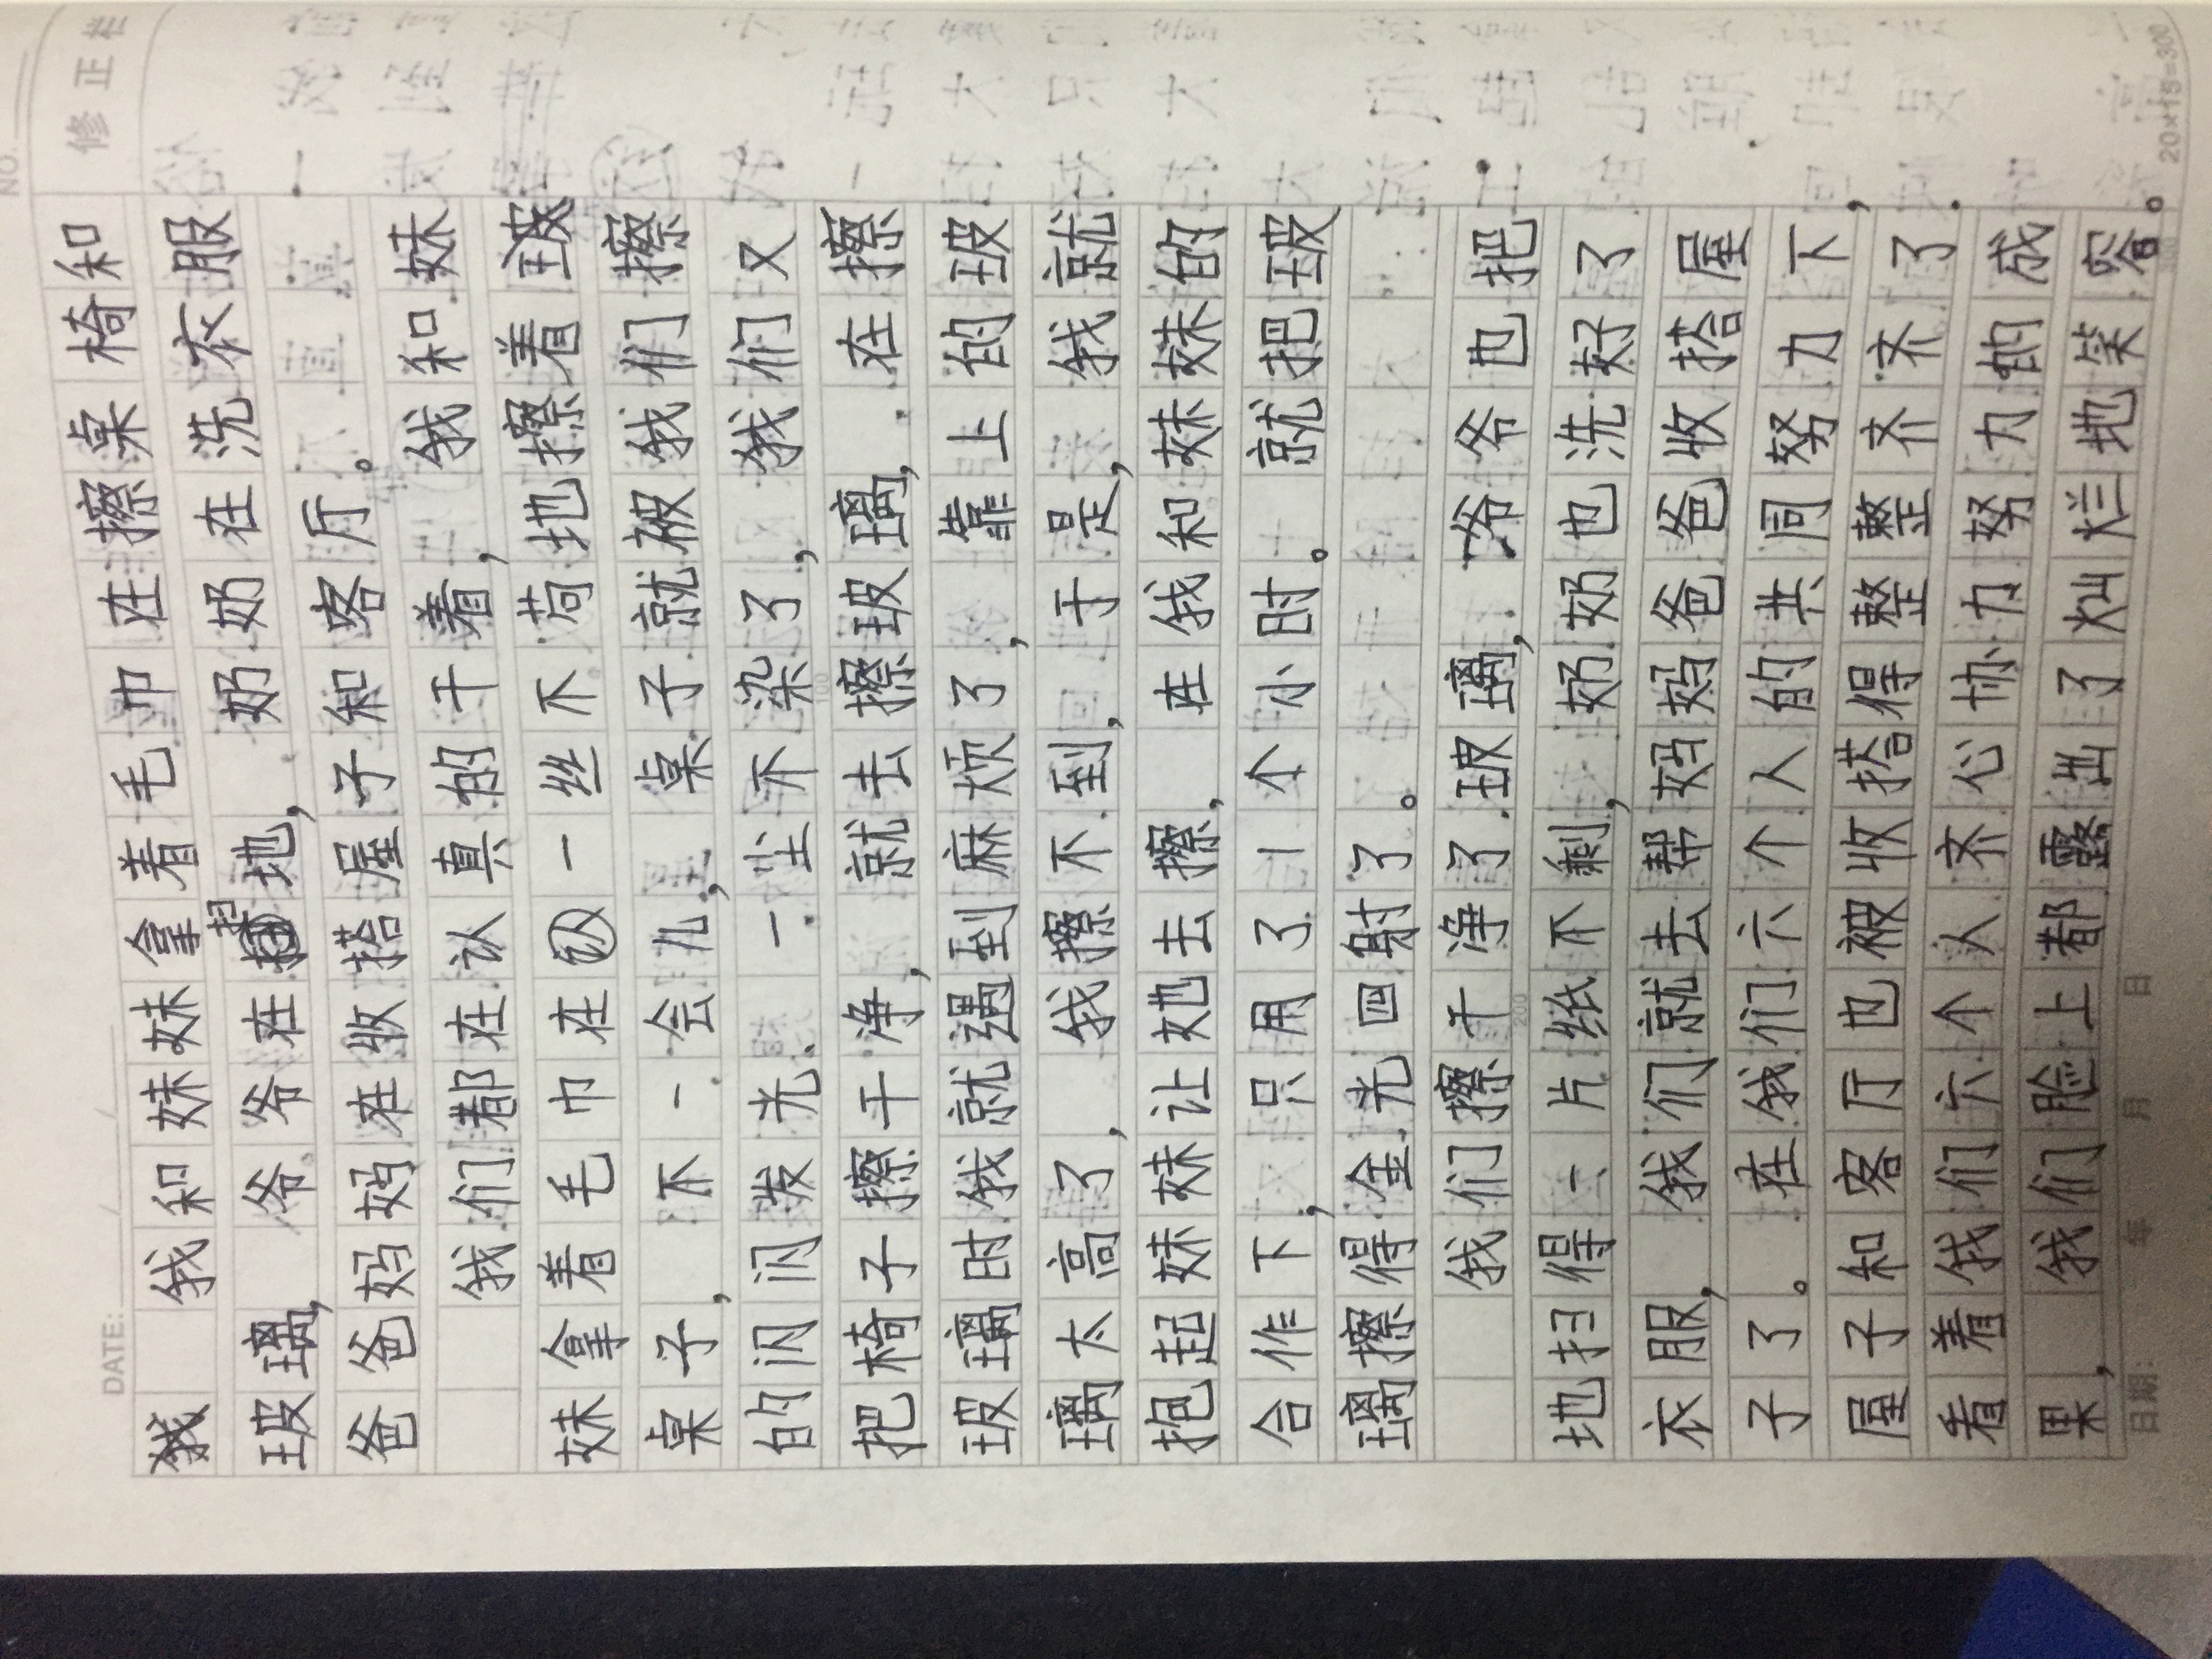 NO.
修正栏
DATE: / /
我和妹妹拿着毛巾在擦桌椅和
玻璃,爷爷在扫地,奶奶在洗衣服
爸爸妈妈在收搭屋子和客厅。
我们都在认真的干着,我和妹
妹拿着毛巾在一丝不苟地擦着
桌子,不一会儿,桌子就被我们擦
的闪闪发光.一尘不染了,我们又
把椅子擦干净,就去擦玻璃,在擦
玻璃时我就遇到麻烦了,靠上的玻
璃太高了,我擦不到,于是,我就
抱起妹妹让她去擦,在我和妹妹的
合作下,只用了1个小时。就把玻
璃擦得金光四射了。
我们擦干净了玻璃,爷爷也把
地扫得一片纸不剩,奶奶也洗好了
衣服,我们就去帮妈妈爸爸收搭屋
子了。在我们六个人的共同努力下,
屋子和客厅也被收搭得整整齐齐了.
看着我们六个人齐心协力努力的成
果,我们脸上都露出了灿烂地笑容。
日期: 年 月 日
20×15=300